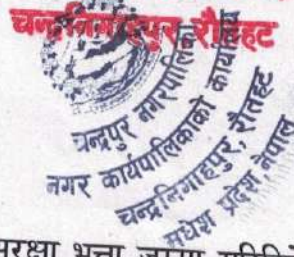 चन्द्रनिगाहपुर, रौतहट
चन्द्रपुर नगरपालिका
नगर कार्यपालिकाको कार्यालय
चन्द्रनिगाहपुर, रौतहट
मधेश प्रदेश, नेपाल
सुरक्षा भत्ता